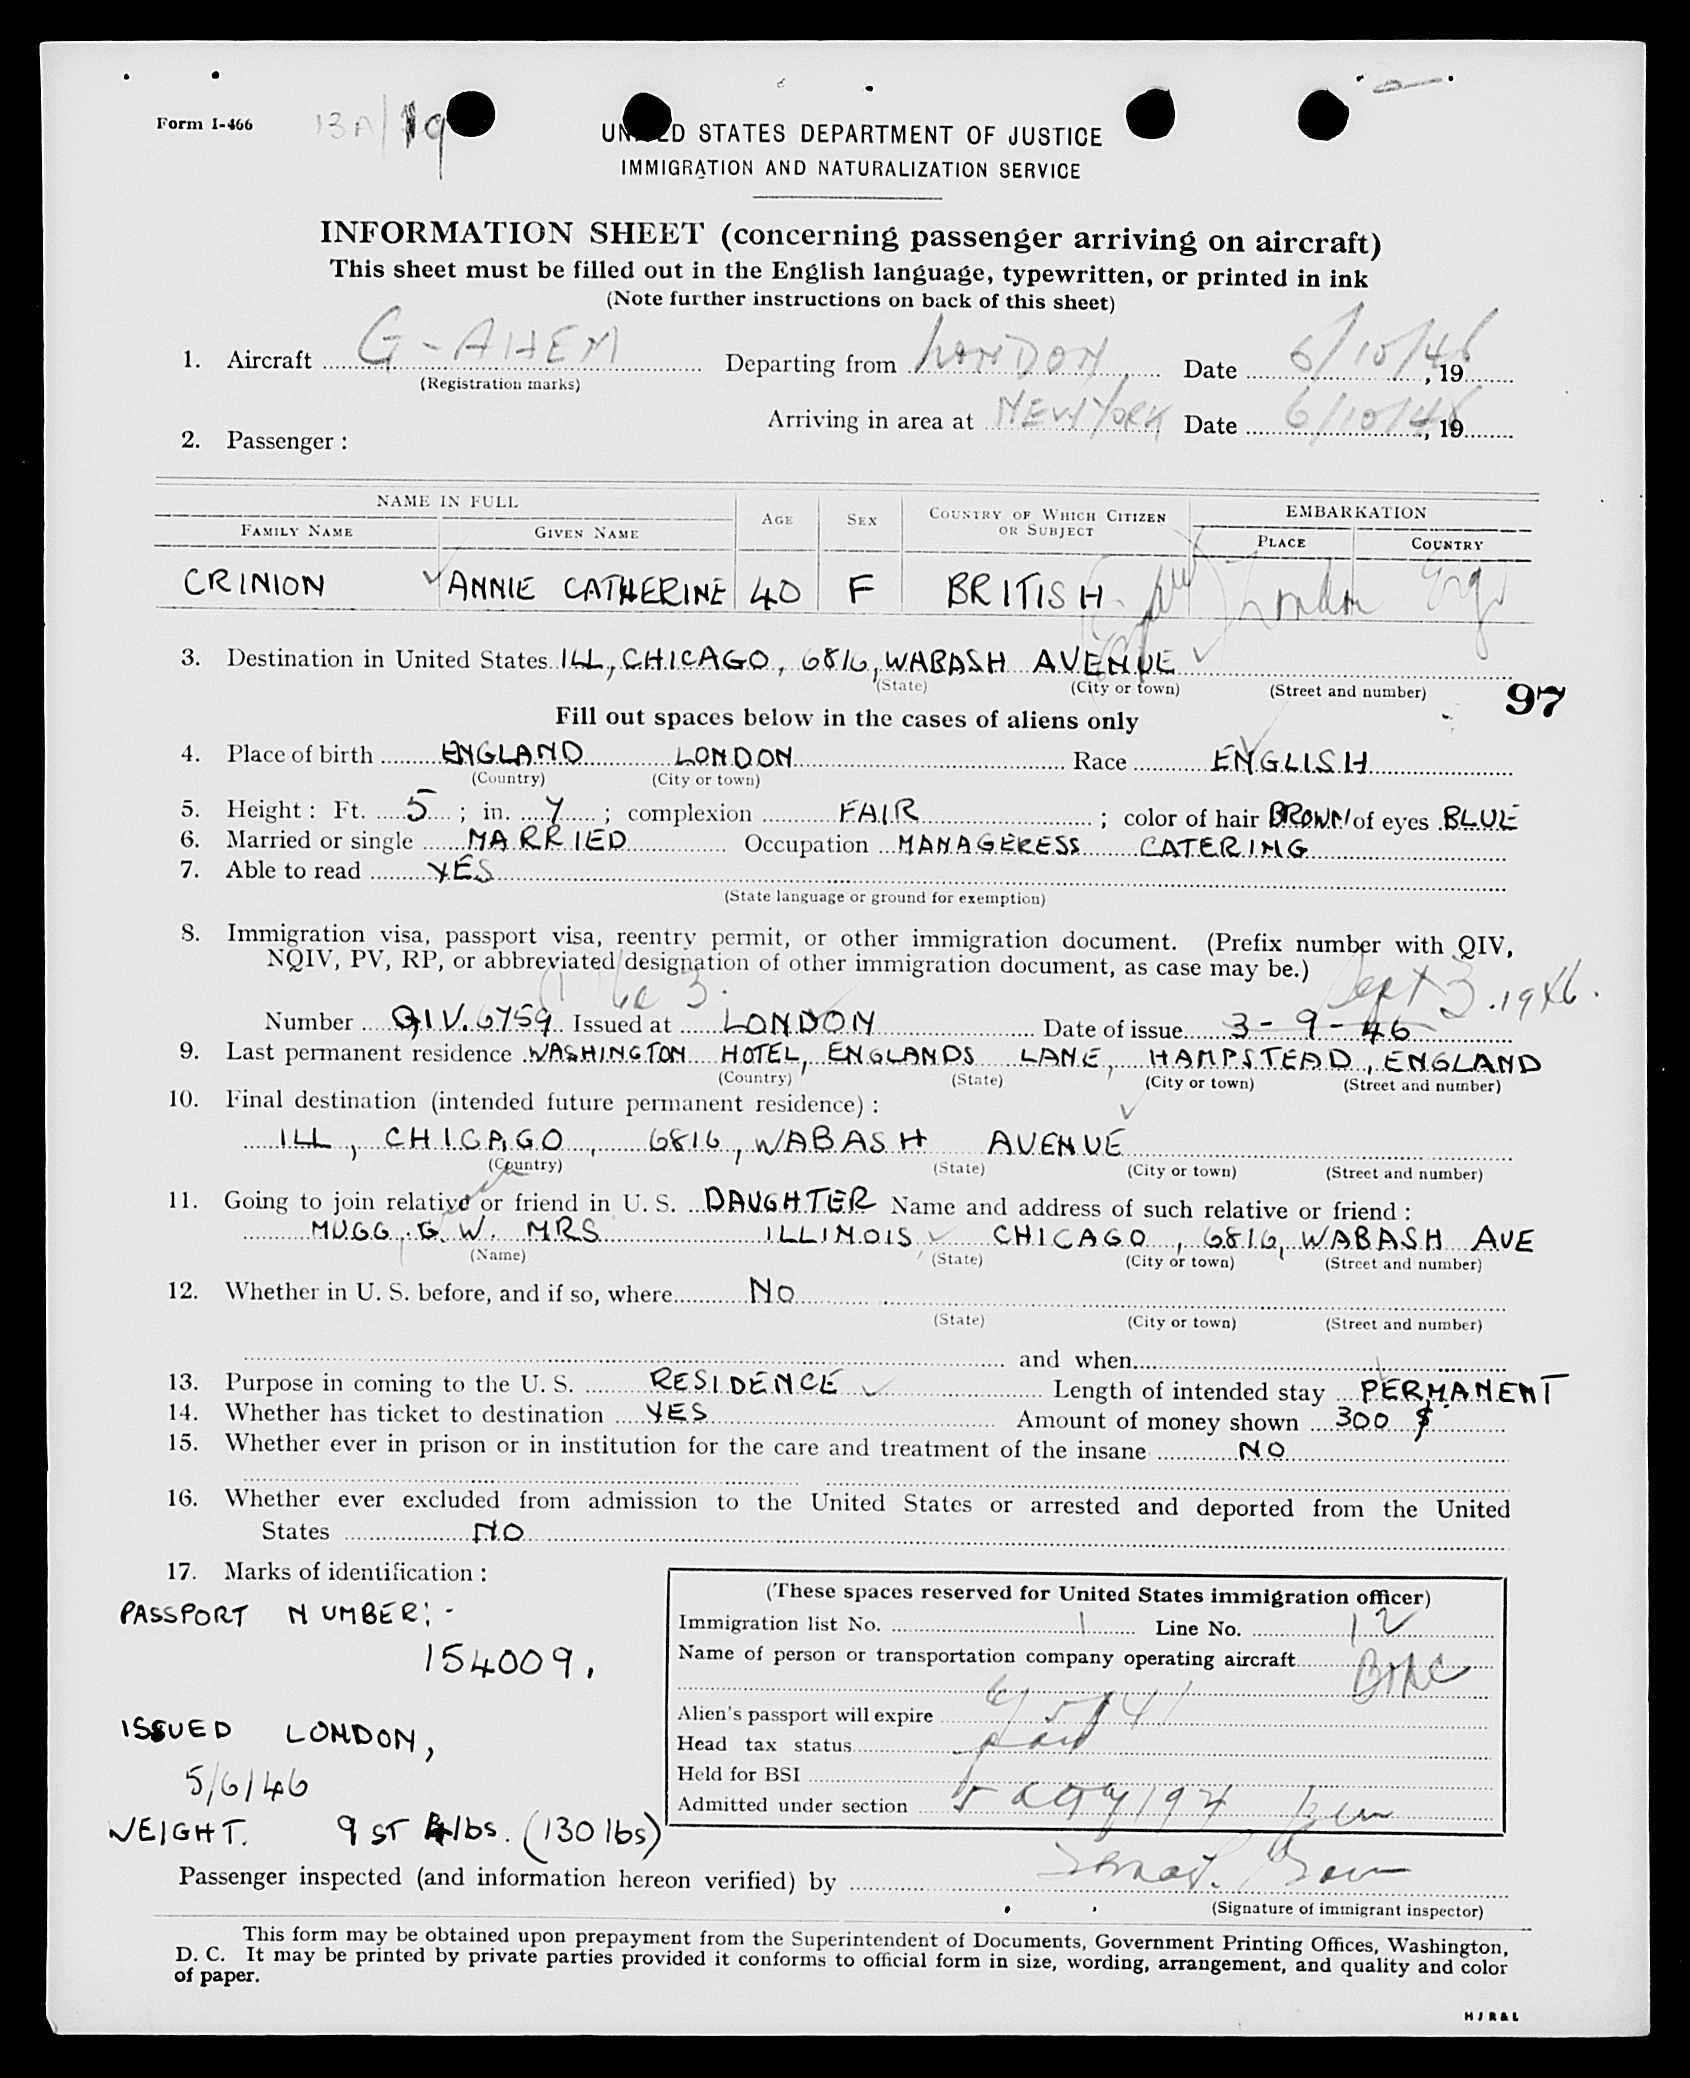 Form I-466 13A/19
UNITED STATES DEPARTMENT OF JUSTICE
IMMIGRATION AND NATURALIZATION SERVICE
INFORMATION SHEET (concerning passenger arriving on aircraft)
This sheet must be filled out in the English language, typewritten, or printed in ink
(Note further instructions on back of this sheet)
1. Aircraft G-AHEM Departing from LONDON Date 6/10/46, 19
(Registration marks)
Arriving in area at NEW YORK Date 6/10/46, 19
2. Passenger :
NAME IN FULL AGE SEX COUNTRY OF WHICH CITIZEN OR SUBJECT EMBARKATION
FAMILY NAME GIVEN NAME PLACE COUNTRY
CRINION ANNIE CATHERINE 40 F BRITISH London Eng
3. Destination in United States ILL, CHICAGO, 6816, WABASH AVENUE
(State) (City or town) (Street and number) 97
Fill out spaces below in the cases of aliens only
4. Place of birth ENGLAND LONDON Race ENGLISH
(Country) (City or town)
5. Height : Ft. 5 ; in. 7 ; complexion FAIR ; color of hair BROWN of eyes BLUE
6. Married or single MARRIED Occupation MANAGERESS CATERING
7. Able to read YES
(State language or ground for exemption)
8. Immigration visa, passport visa, reentry permit, or other immigration document. (Prefix number with QIV,
NQIV, PV, RP, or abbreviated designation of other immigration document, as case may be.)
Sept 3. 1946.
Number QIV.6759 Issued at LONDON Date of issue 3-9-46
9. Last permanent residence WASHINGTON HOTEL, ENGLANDS LANE, HAMPSTEAD, ENGLAND
(Country) (State) (City or town) (Street and number)
10. Final destination (intended future permanent residence) :
ILL, CHICAGO, 6816, WABASH AVENUE
(Country) (State) (City or town) (Street and number)
11. Going to join relative or friend in U. S. DAUGHTER Name and address of such relative or friend :
MUGG. G. W. MRS ILLINOIS CHICAGO, 6816, WABASH AVE
(Name) (State) (City or town) (Street and number)
12. Whether in U. S. before, and if so, where NO
(State) (City or town) (Street and number)
and when
13. Purpose in coming to the U. S. RESIDENCE Length of intended stay PERMANENT
14. Whether has ticket to destination YES Amount of money shown 300 $
15. Whether ever in prison or in institution for the care and treatment of the insane NO
16. Whether ever excluded from admission to the United States or arrested and deported from the United
States NO
17. Marks of identification :
PASSPORT NUMBER:-
154009.
ISSUED LONDON,
5/6/46
WEIGHT. 9 ST 4lbs. (130 lbs)
(These spaces reserved for United States immigration officer)
Immigration list No. 1 Line No. 12
Name of person or transportation company operating aircraft BOAC
Alien's passport will expire
Head tax status paid
Held for BSI
Admitted under section
Passenger inspected (and information hereon verified) by
(Signature of immigrant inspector)
This form may be obtained upon prepayment from the Superintendent of Documents, Government Printing Offices, Washington,
D. C. It may be printed by private parties provided it conforms to official form in size, wording, arrangement, and quality and color
of paper.
H J R & L